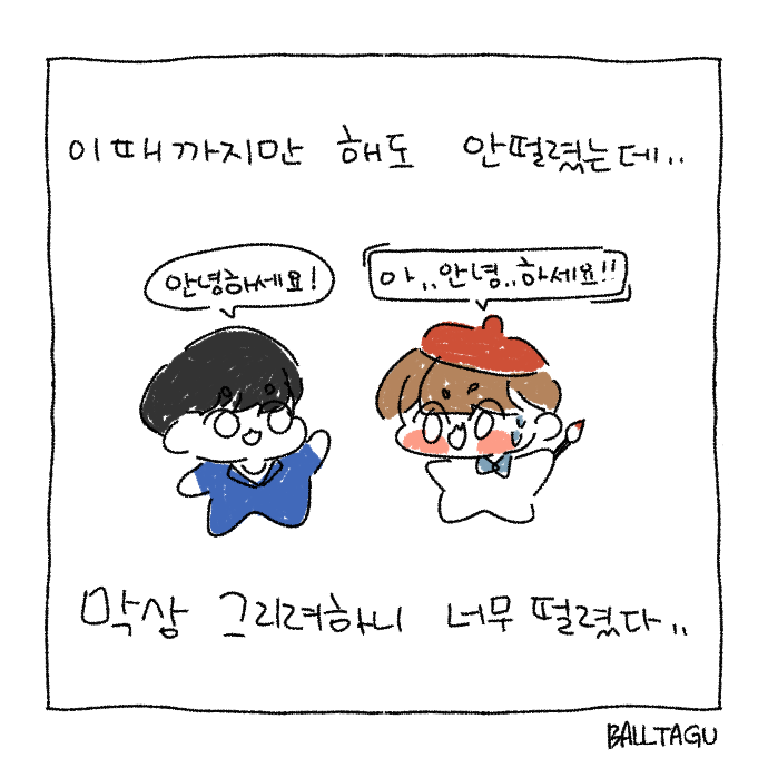 이때까지만 해도 안떨렸는데..
안녕하세요!
아..안녕..하세요!!
막상 그리려하니 너무 떨렸다..
BALLTAGU